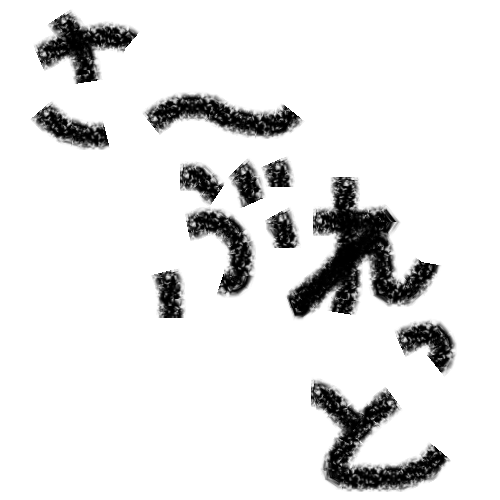 さ～ぶれっと